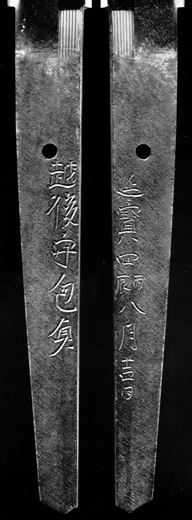 越後守包貞
延寶四 八月吉日